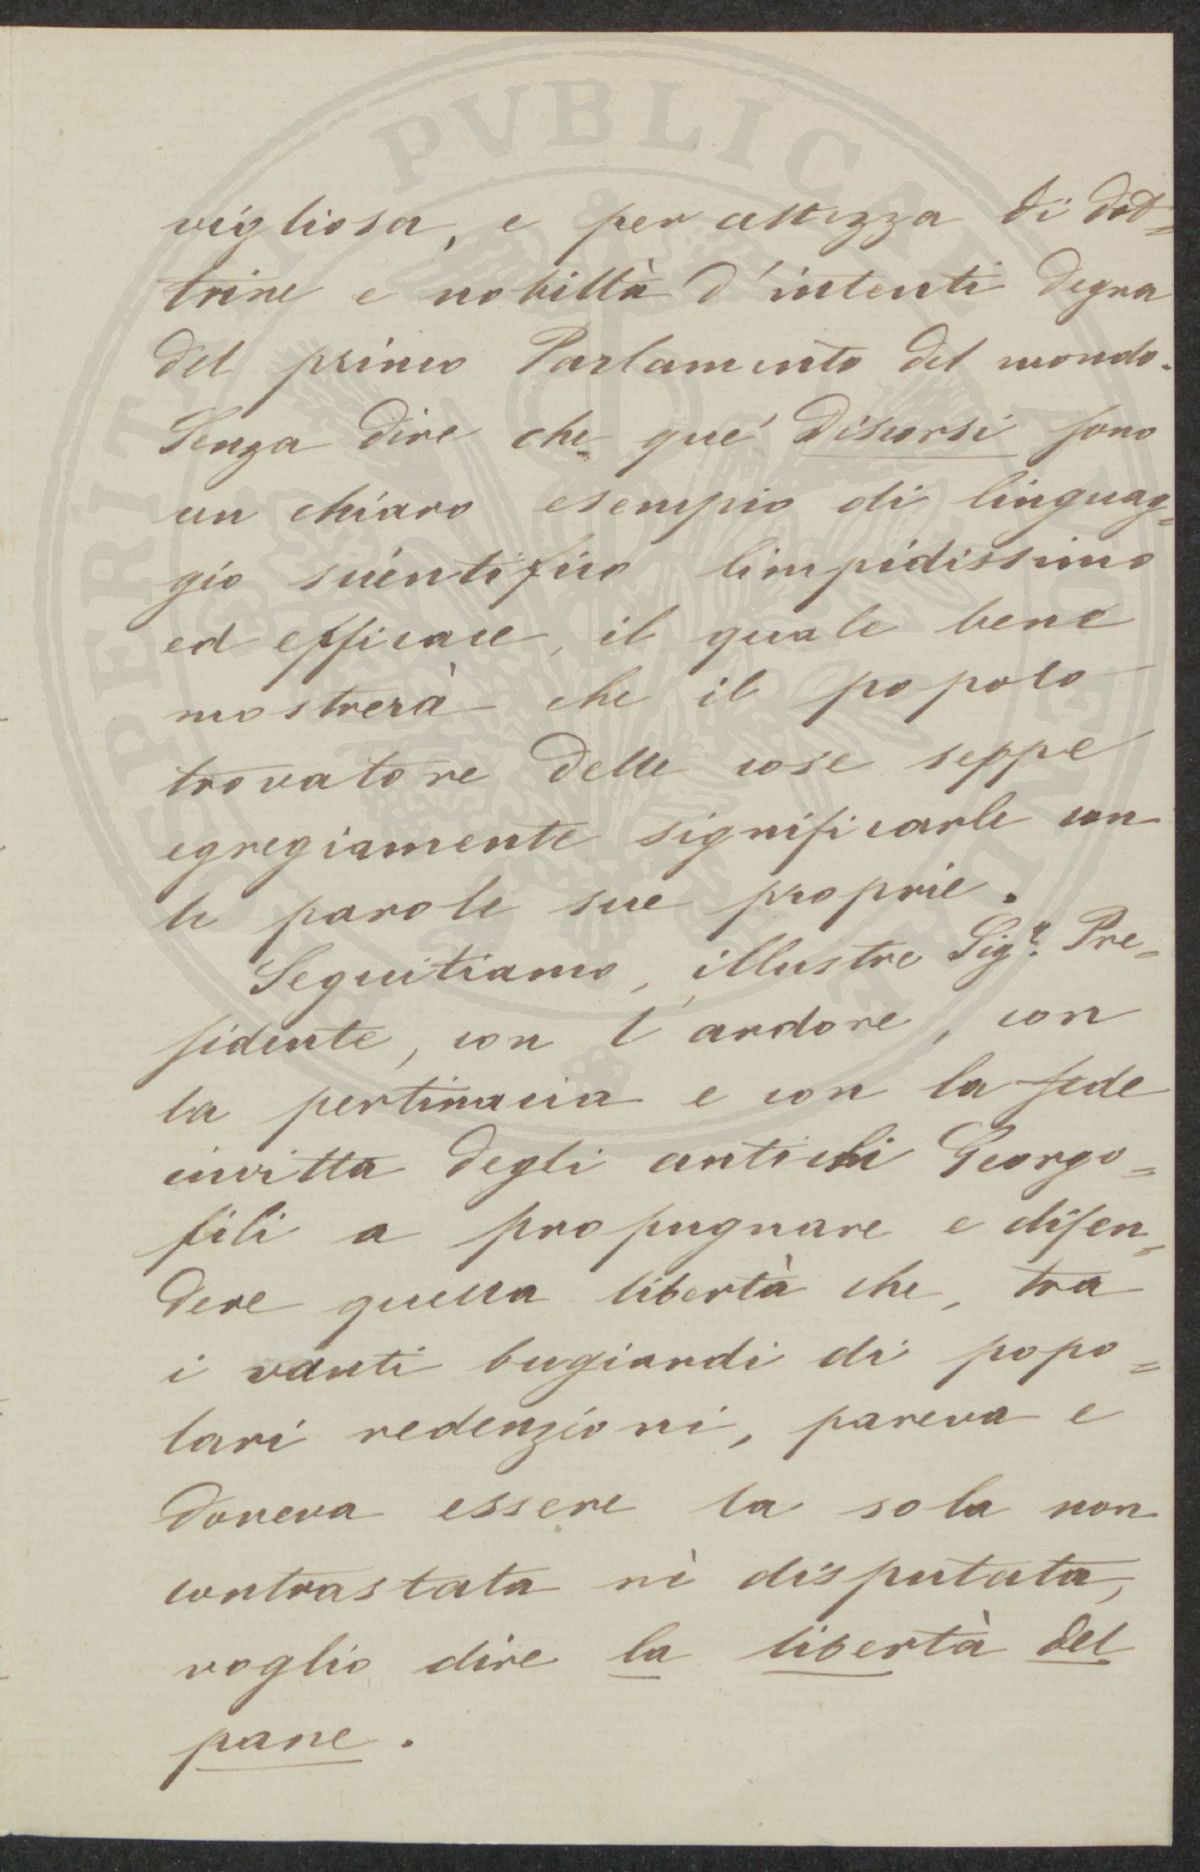 vigliosa, e per altezza di dot=
trine e nobiltà d'intenti degna
del primo Parlamento del mondo.
Senza dire che que' discorsi sono
un chiaro esempio di linguag=
gio scientifico limpidissimo
ed efficace, il quale bene
mostrerà che il popolo
trovatore delle cose seppe
egregiamente significarle con
le parole sue proprie.
Seguitiamo, illustre Sigr. Pre=
sidente, con l'ardore, con
la pertinacia e con la fede
invitta degli antichi Georgo=
fili a propugnare e difen=
dere quella libertà che, tra
i vanti bugiardi di popo=
lari redenzioni, pareva e
doveva essere la sola non
contrastata nè disputata,
voglio dire la libertà del
pane.
PROSPERITATI PVBLICAE AVGENDAE